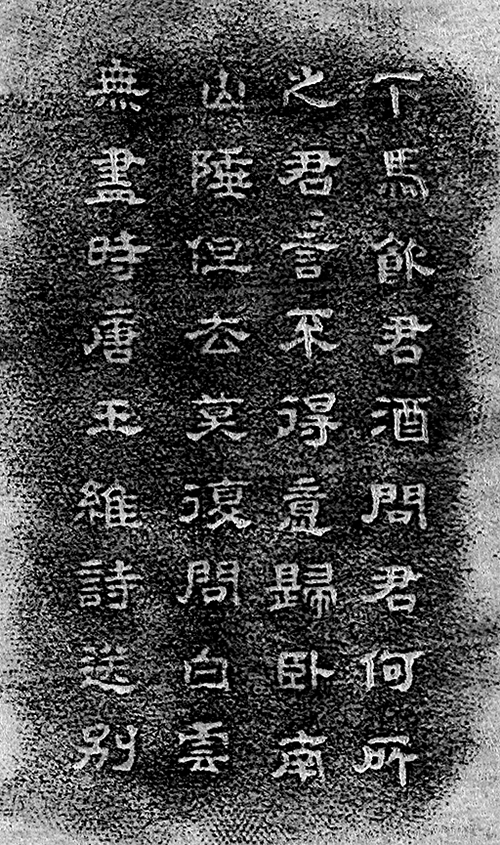 下馬飲君酒問君何所
之君言不得意歸卧南
山陲但去莫復問白雲
無盡時唐王維詩送別